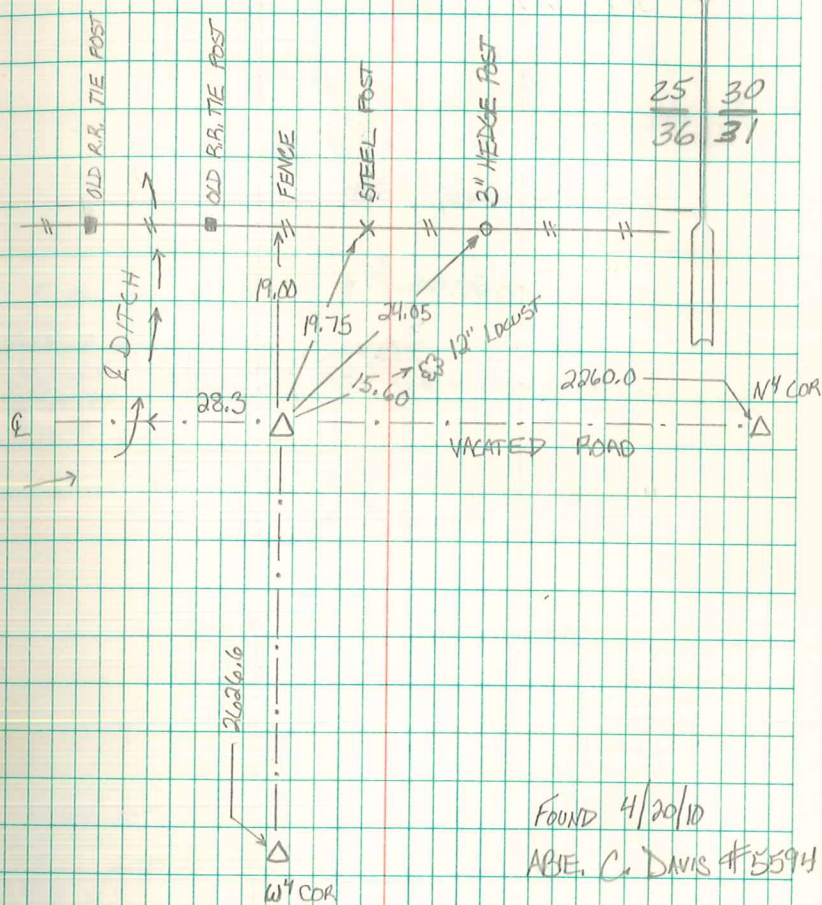 OLD R.R. TIE POST
OLD R.R. TIE POST
FENCE
STEEL POST
3" HEDGE POST
25 30
36 31
℄ DITCH
19.00
19.75
24.05
15.60
12" LOCUST
28.3
2260.0
N4 COR
℄
VACATED ROAD
2626.6
W4 COR
FOUND 4/20/10
ABIE. C. DAVIS #5594